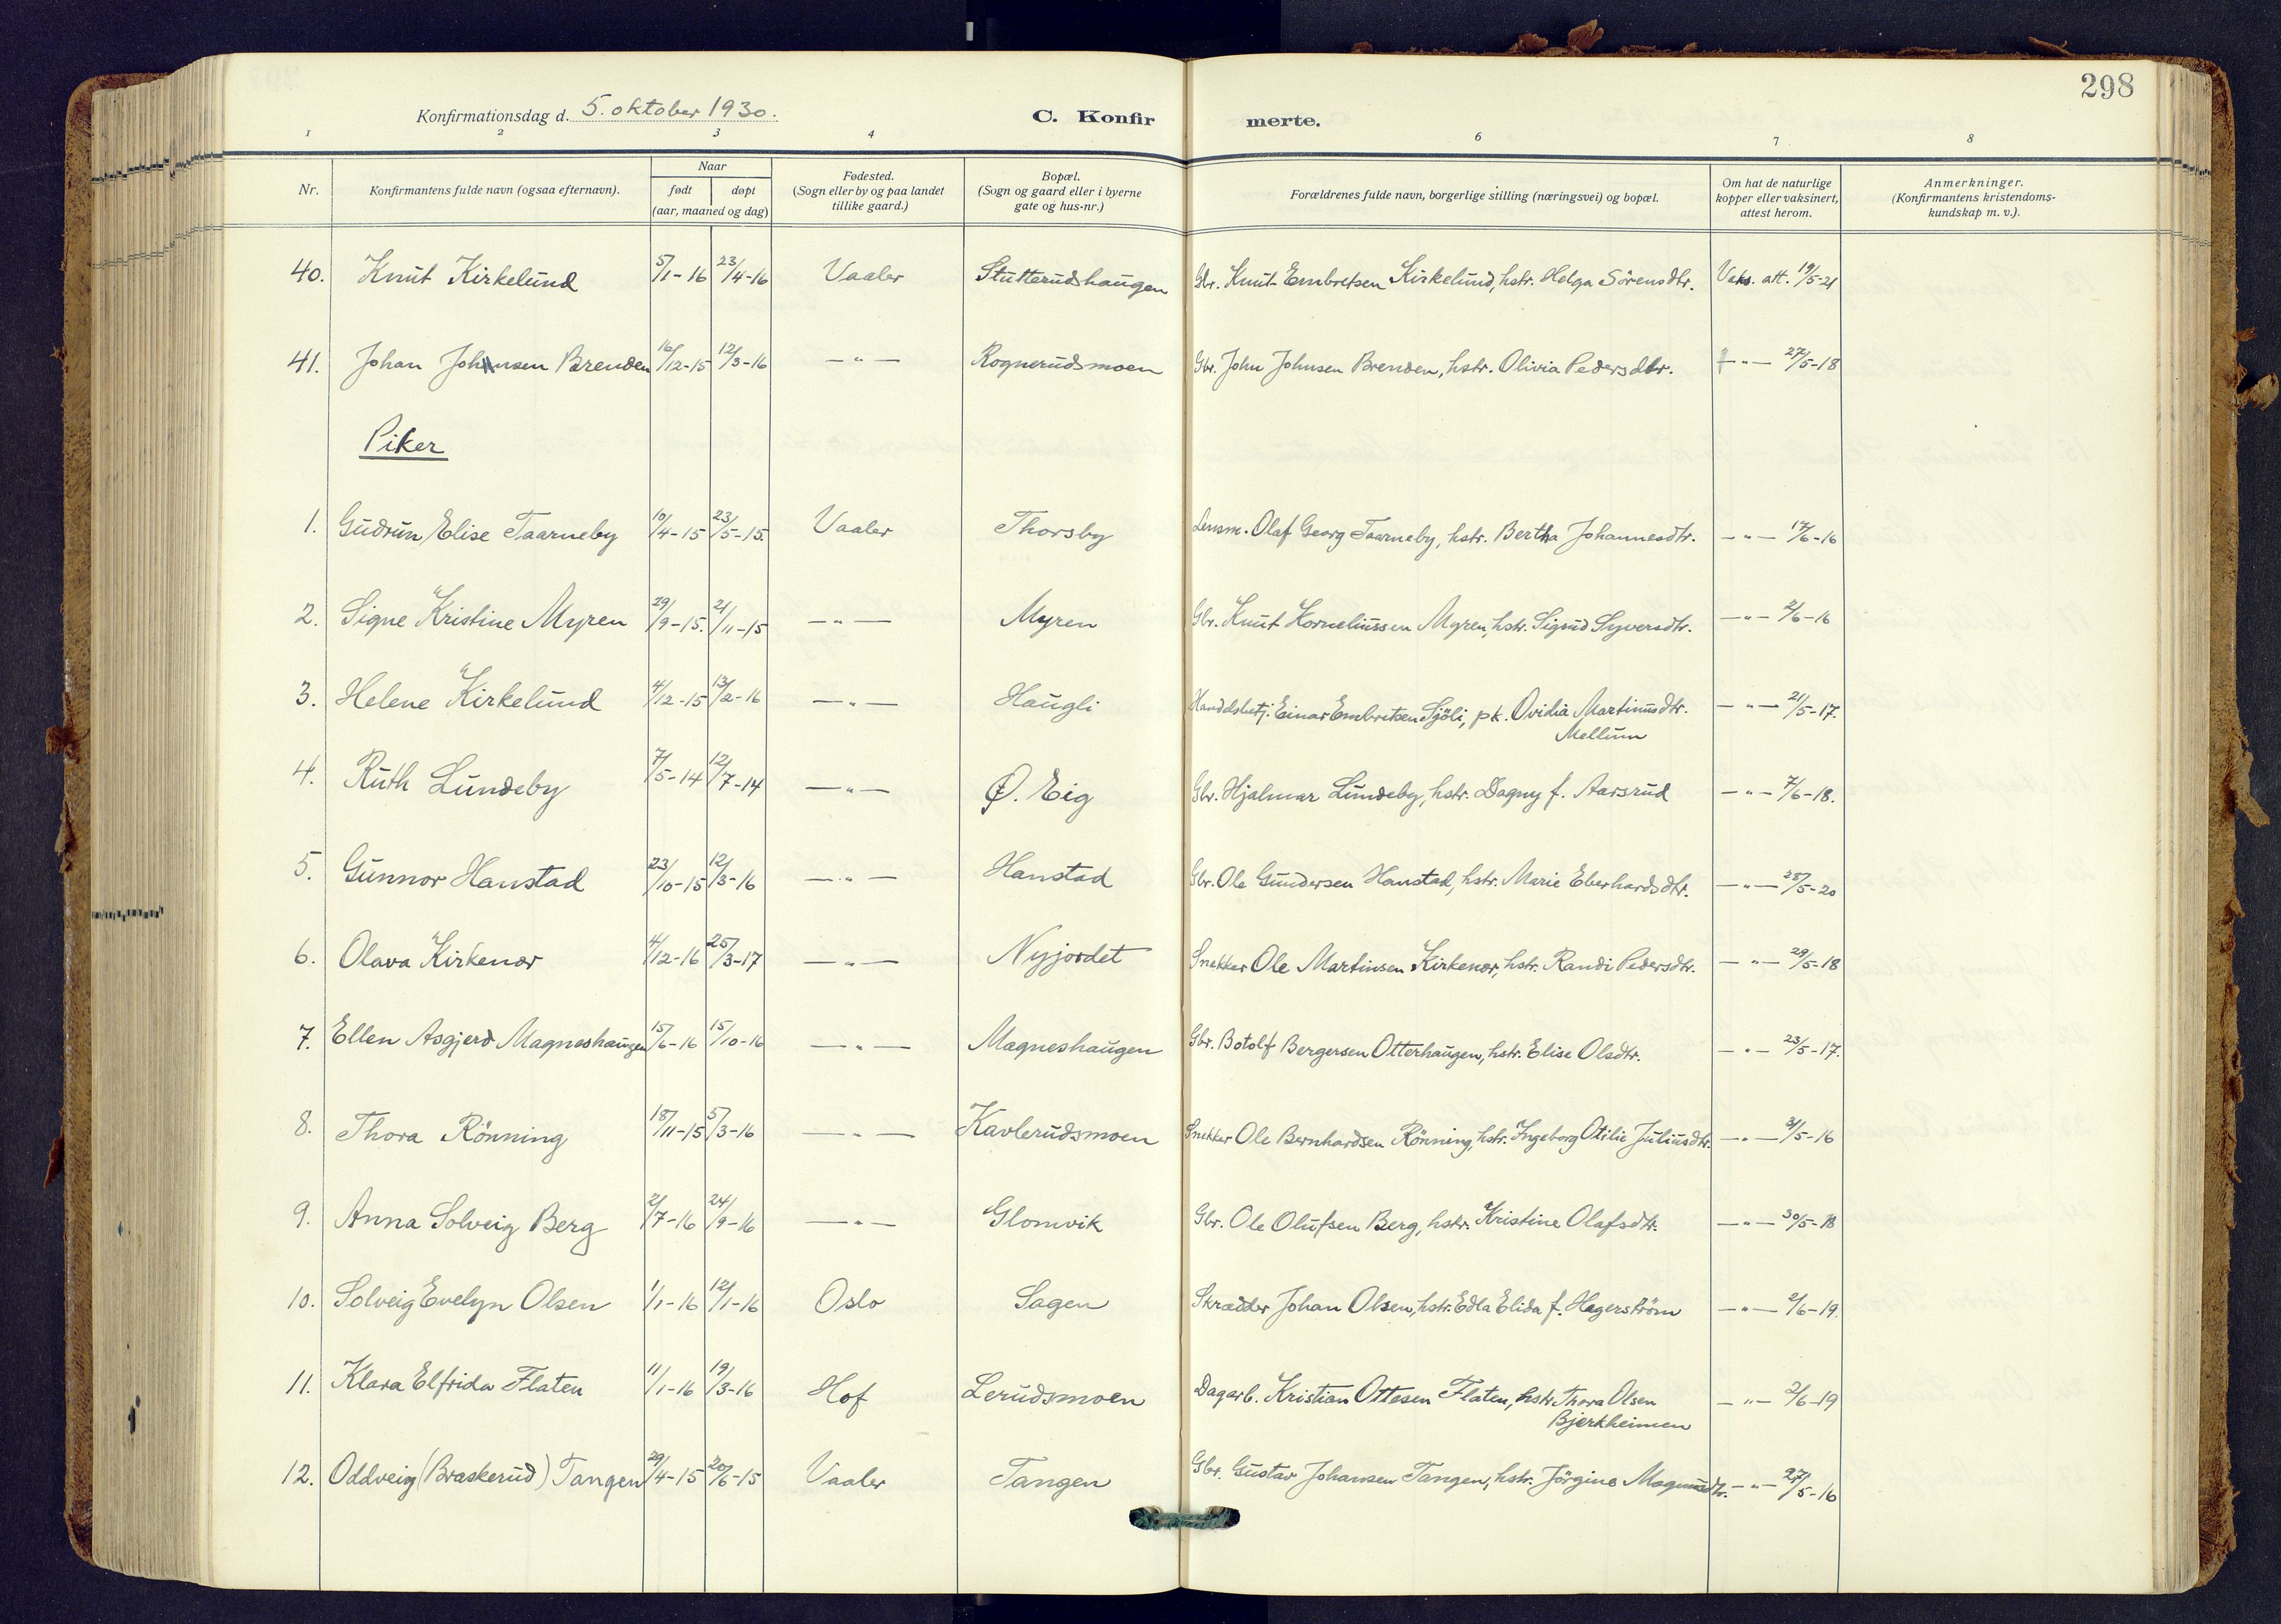 298
Konfirmationsdag d. 5. oktober 1930. C. Konfirmerte.
1 2 3 4 6 7 8
Nr. Konfirmantens fulde navn (ogsaa efternavn). Naar født døpt (aar, maaned og dag) Fødested. (Sogn eller by og paa landet tillike gaard.) Bopæl. (Sogn og gaard eller i byerne gate og hus-nr.) Forældrenes fulde navn, borgerlige stilling (næringsvei) og bopæl. Om hat de naturlige kopper eller vaksinert, attest herom. Anmerkninger. (Konfirmantens kristendoms-kundskap m. v.).
40. Knut Kirkelund 5/1-16 23/4-16 Vaaler Stutterudshaugen Gbr. Knut Embretsen Kirkelund, hstr. Helga Sörensdtr. Vaks. att. 19/5-21
41. Johan Johnsen Brenden 16/12-15 12/3-16 —"— Rognerudsmoen Gbr. John Johnsen Brenden, hstr. Olivia Pedersdtr. —"— 27/5-18
Piker
1. Gudrun Elise Taarneby 10/4-15 23/5-15. Vaaler Thorsby Lensm. Olaf Georg Taarneby, hstr. Bertha Johannesdtr. —"— 17/6-16
2. Signe Kristine Myren 29/9-15. 21/11-15 —"— Myren Gbr. Knut Korneliussen Myren, hstr. Sigrid Syversdtr. —"— 2/6-16
3. Helene Kirkelund 4/12-15 13/2-16 —"— Haugli Handelsbetj. Einar Embretsen Sjöli, pk. Ovidia Martinusdtr. —"— 21/5-17.
Mellum
4. Ruth Lundeby 7/5-14 12/7-14 —"— Ø. Eig Gbr. Hjalmar Lundeby, hstr. Dagny f. Aarsrud —"— 7/6-18.
5. Gunnor Hanstad 23/10-15 12/3-16 —"— Hanstad Gbr. Ole Gundersen Hanstad, hstr. Marie Eberhardsdtr. —"— 28/5-20
6. Olava Kirkenær 4/12-16 25/3-17 —"— Nyjordet Snekker Ole Martinsen Kirkenær, hstr. Randi Pedersdtr. —"— 29/5-18
7. Ellen Asgjerd Magneshaugen 15/6-16 15/10-16 —"— Magneshaugen Gbr. Botolf Bergersen Otterhaugen, hstr. Elise Olsdtr. —"— 23/5-17.
8. Thora Rönning 18/11-15 5/3-16 —"— Kavlerudsmoen Snekker Ole Bernhardsen Rönning, hstr. Ingeborg Otilie Juliusdtr. —"— 31/5-16
9. Anna Solveig Berg 2/7-16 24/9-16 —"— Glomvik Gbr. Ole Olufsen Berg, hstr. Kristine Olafsdtr. —"— 30/5-18
10. Solveig Evelyn Olsen 1/1-16 12/1-16 Oslo Sagen Skrædder Johan Olsen, hstr. Edla Elida f. Hagerström —"— 2/6-19.
11. Klara Elfrida Flaten 11/1-16 19/3-16 Hof Lerudsmoen Dagarb. Kristian Ottesen Flaten, hstr. Thora Olsen —"— 2/6-19
Bjerkheimen
12. Oddveig (Braskerud) Tangen 29/4-15 20/6-15 Vaaler Tangen Gbr. Gustav Johansen Tangen, hstr. Jörgine —"— 27/5-16